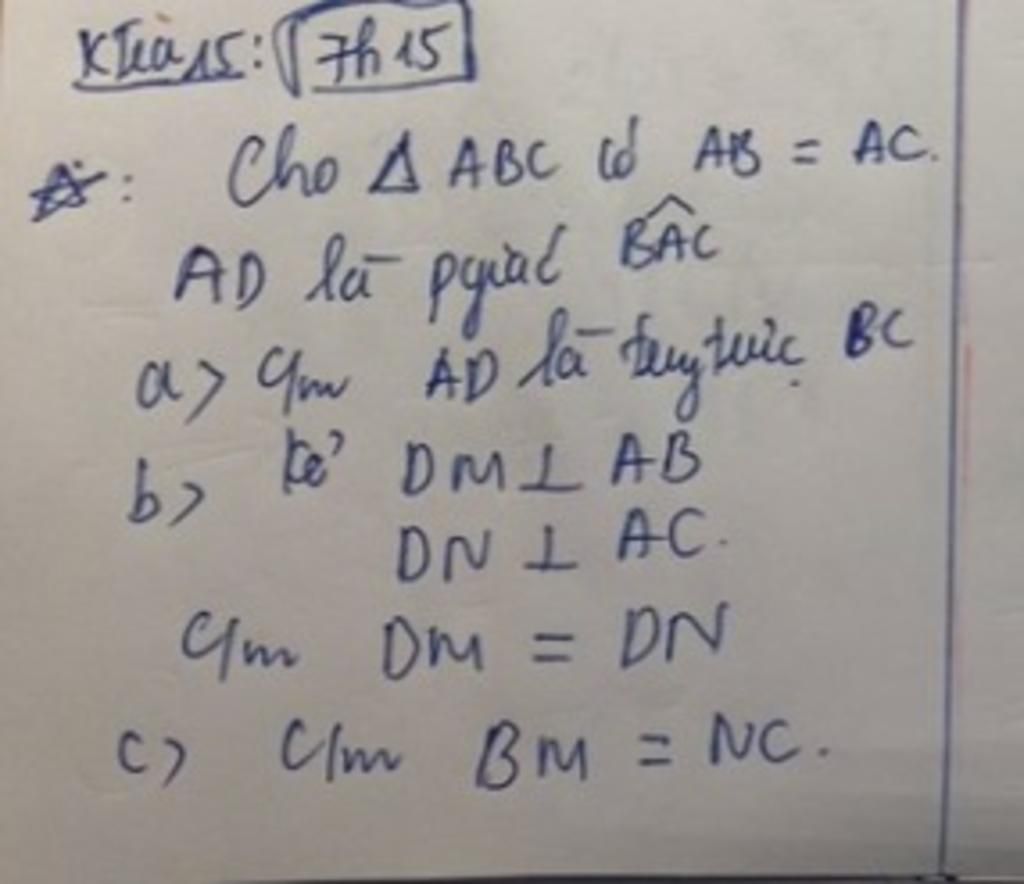 KTra 15: 7h15
Cho Δ ABC có AB = AC.
AD là pgiác BÂC
a> C/m AD là trung trực BC
b> kẻ DM ⊥ AB
DN ⊥ AC.
C/m DM = DN
c> C/m BM = NC.